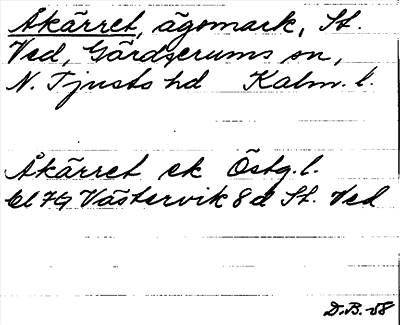 Åkärret, ägomark, St.
Ved, Gärdserums sn,
N. Tjusts hd Kalm. l.
Åkärret ek Östg. l.
Bl 74 Västervik 8d St. Ved
D.B. -58